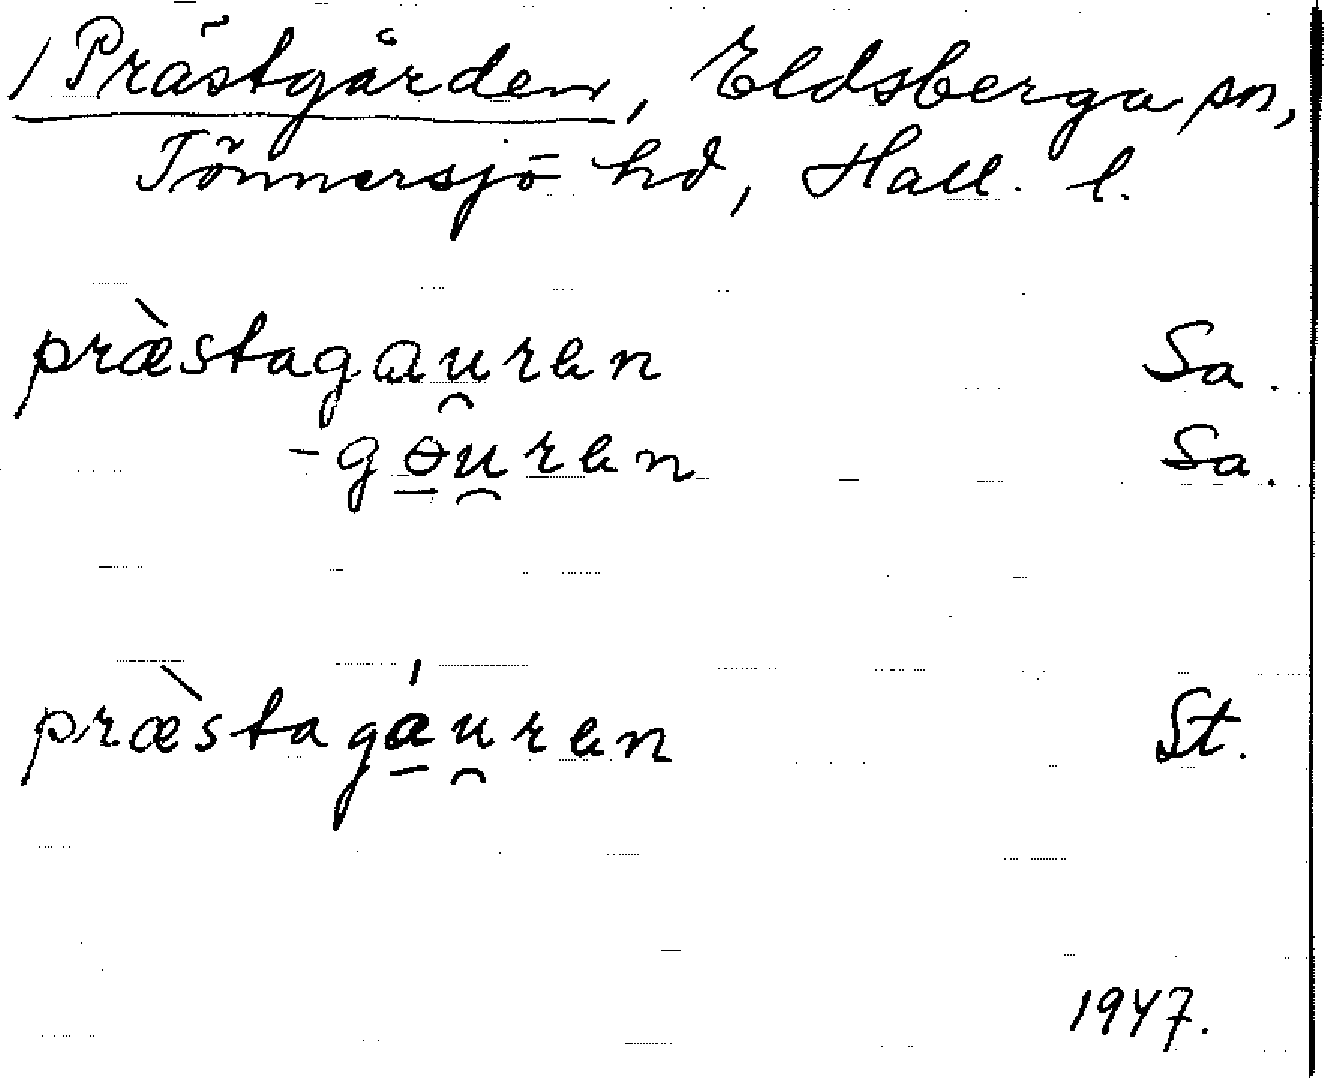 / Prästgården, Eldsberga sn,
Tönnersjö hd, Hall. l.
præ̀stagau̯ren Sa.
-gɵ̱u̯ren Sa.
præ̀stagá̱u̯ren St.
1947.